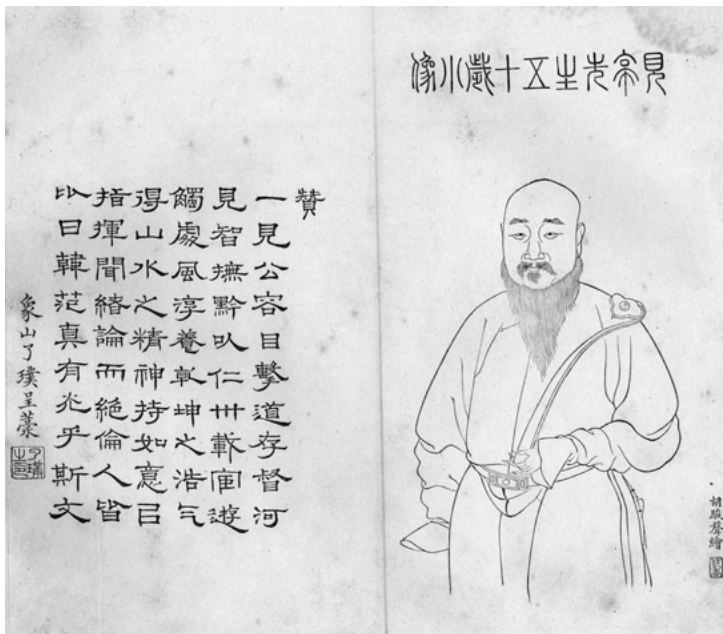 見亭先生五十歲小像
胡駿聲繪
贊
一見公容目擊道存督河
見智撫黔以仁卅載宦遊
觸處風淳養乾坤之浩气
得山水之精神持如意㠯
指揮聞緒論而絕倫人皆
以曰韓范真有光乎斯文
象山了璞呈藁